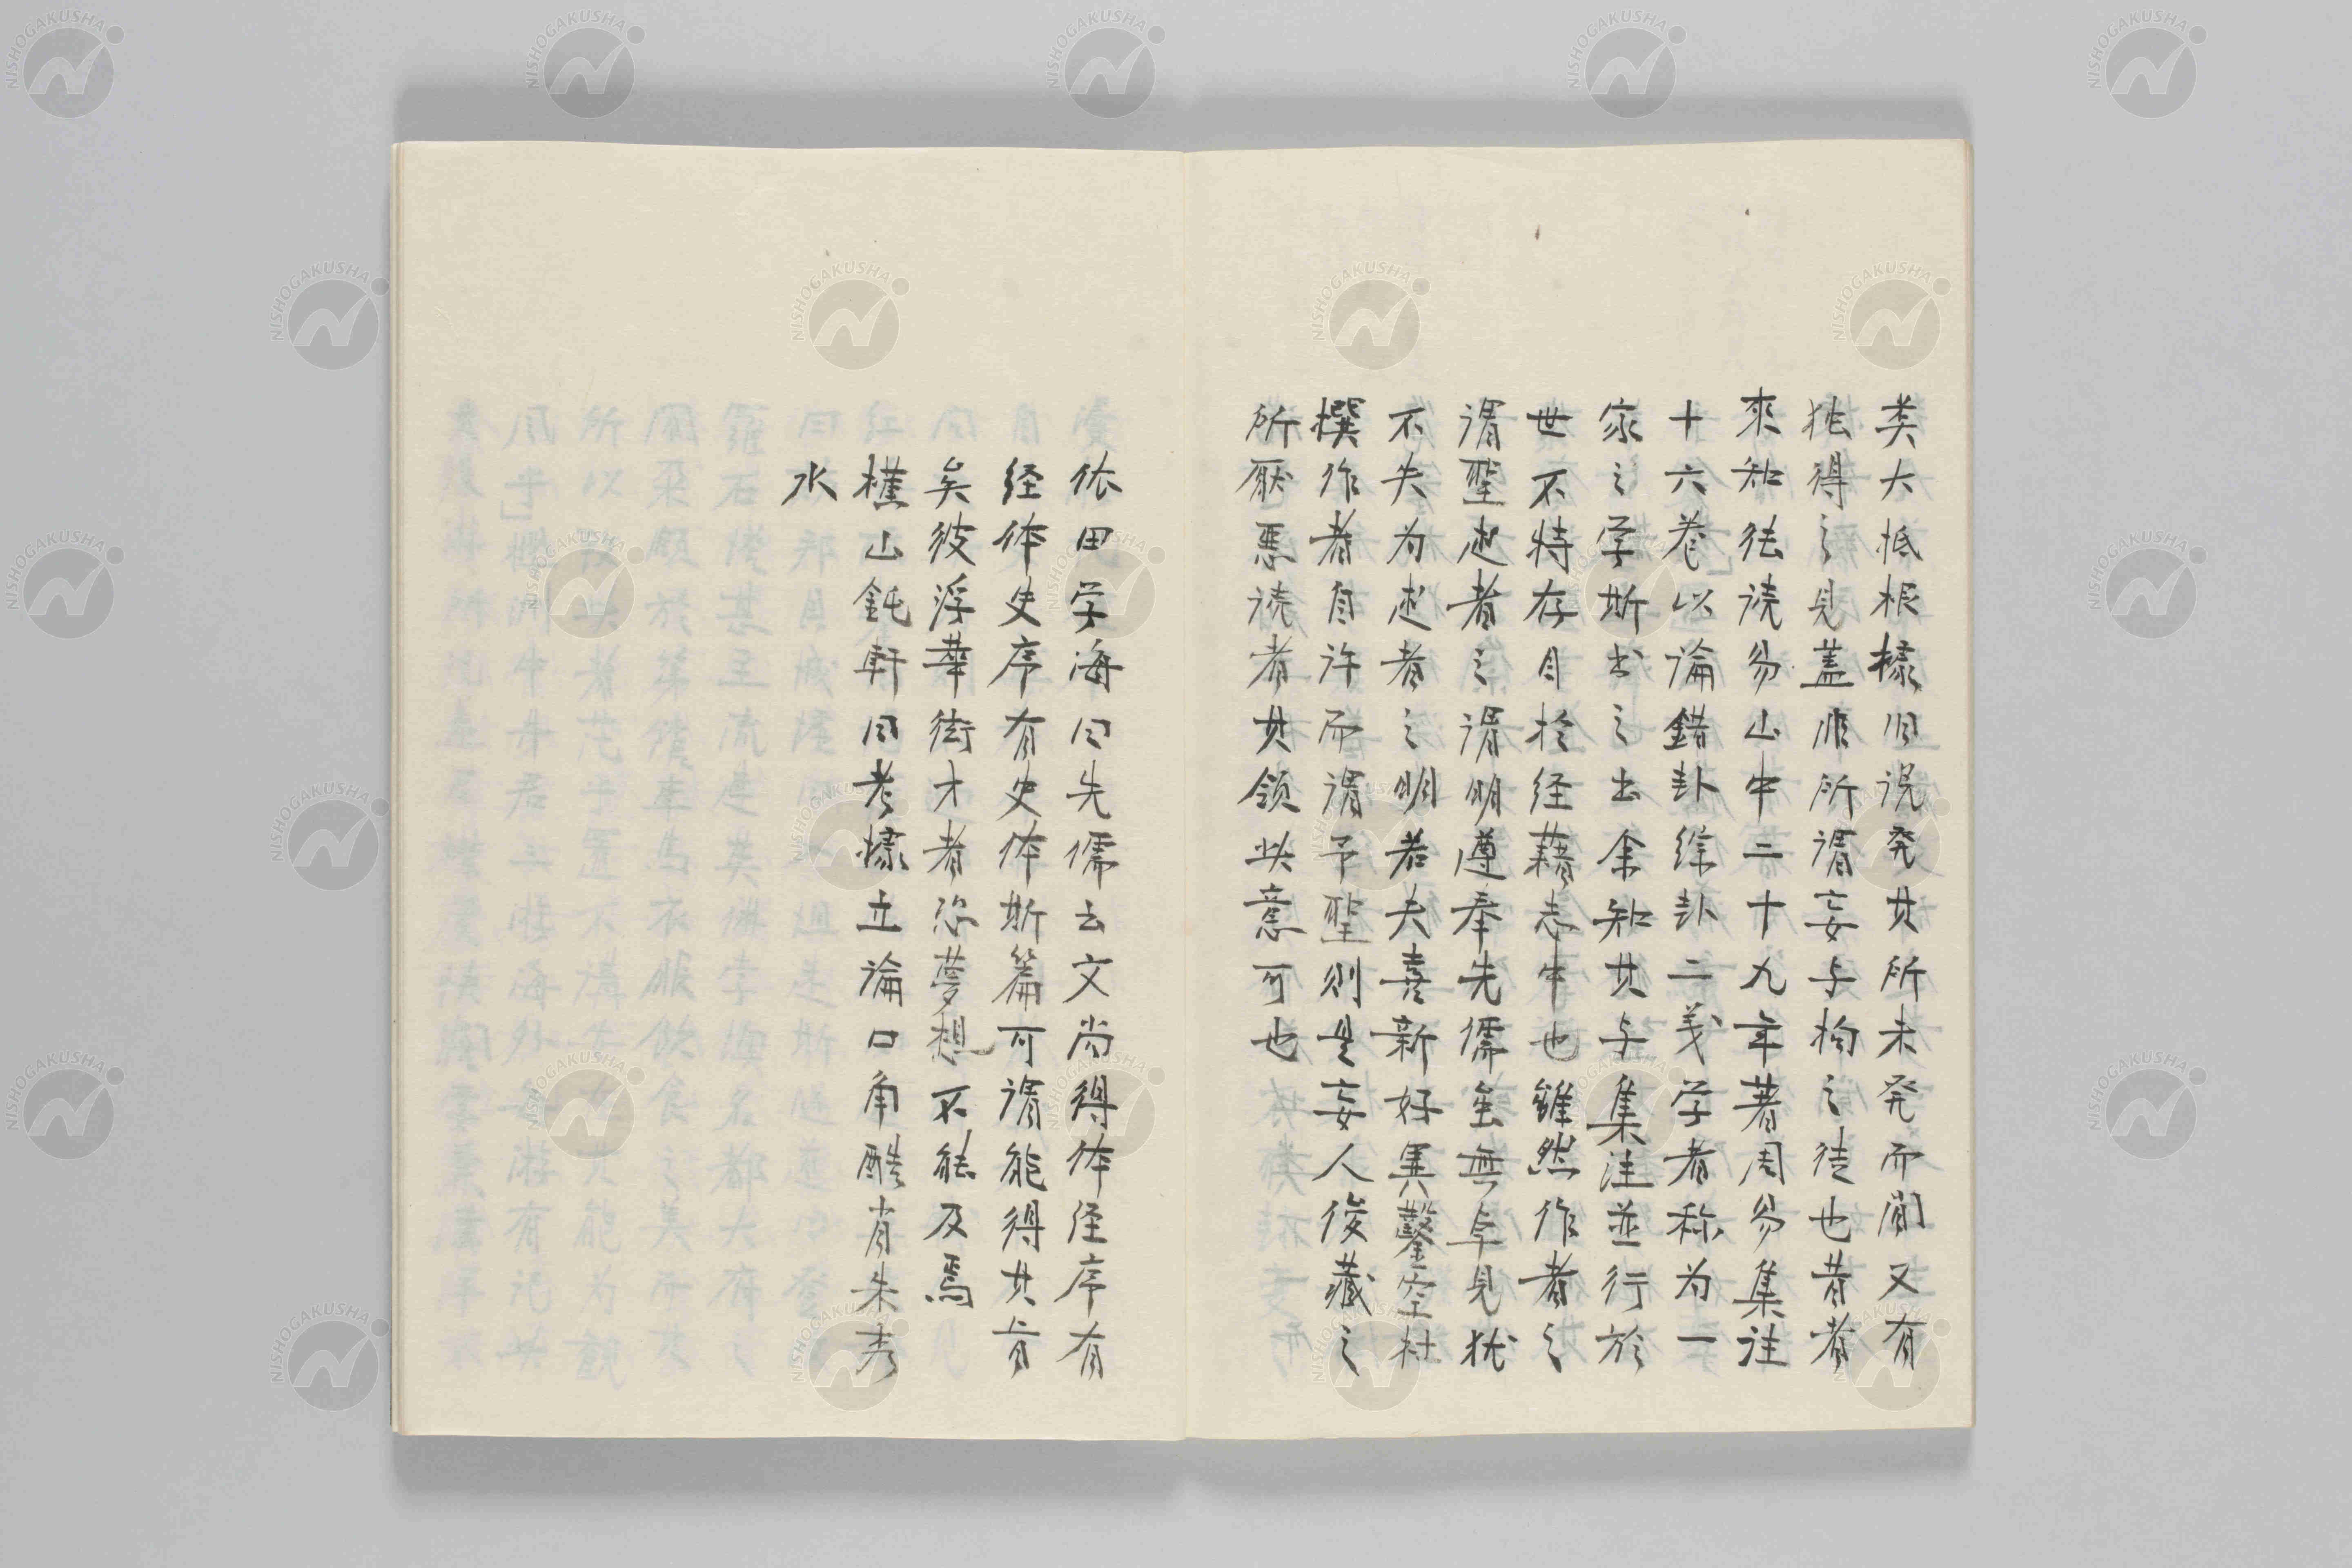 类大抵根據旧説発其所未発而間又有
独得之見蓋非所謂妄与拘之徒也昔者
來知徳読易山中二十九年著周易集注
十六巻以論錯卦綜卦二義学者称为一
家之学斯书之出余知其与集注並行於
世不特存目於经藉志中也雖然作者之
謂聖述者之謂明遵奉先儒虽無卓見犹
不失为述者之明若夫喜新好異鑿空杜
撰作者自许而谓予聖则是妄人後藏之
所厭悪読者其領此意可也
依田学海曰先儒云文尚得体经序有
经体史序有史体斯篇可謂能得其旨
矣彼浮華街才者恐夢想不能及焉
槿山鈍軒曰考據立論口角酷肖朱秀
水
NISHOGAKUSHA